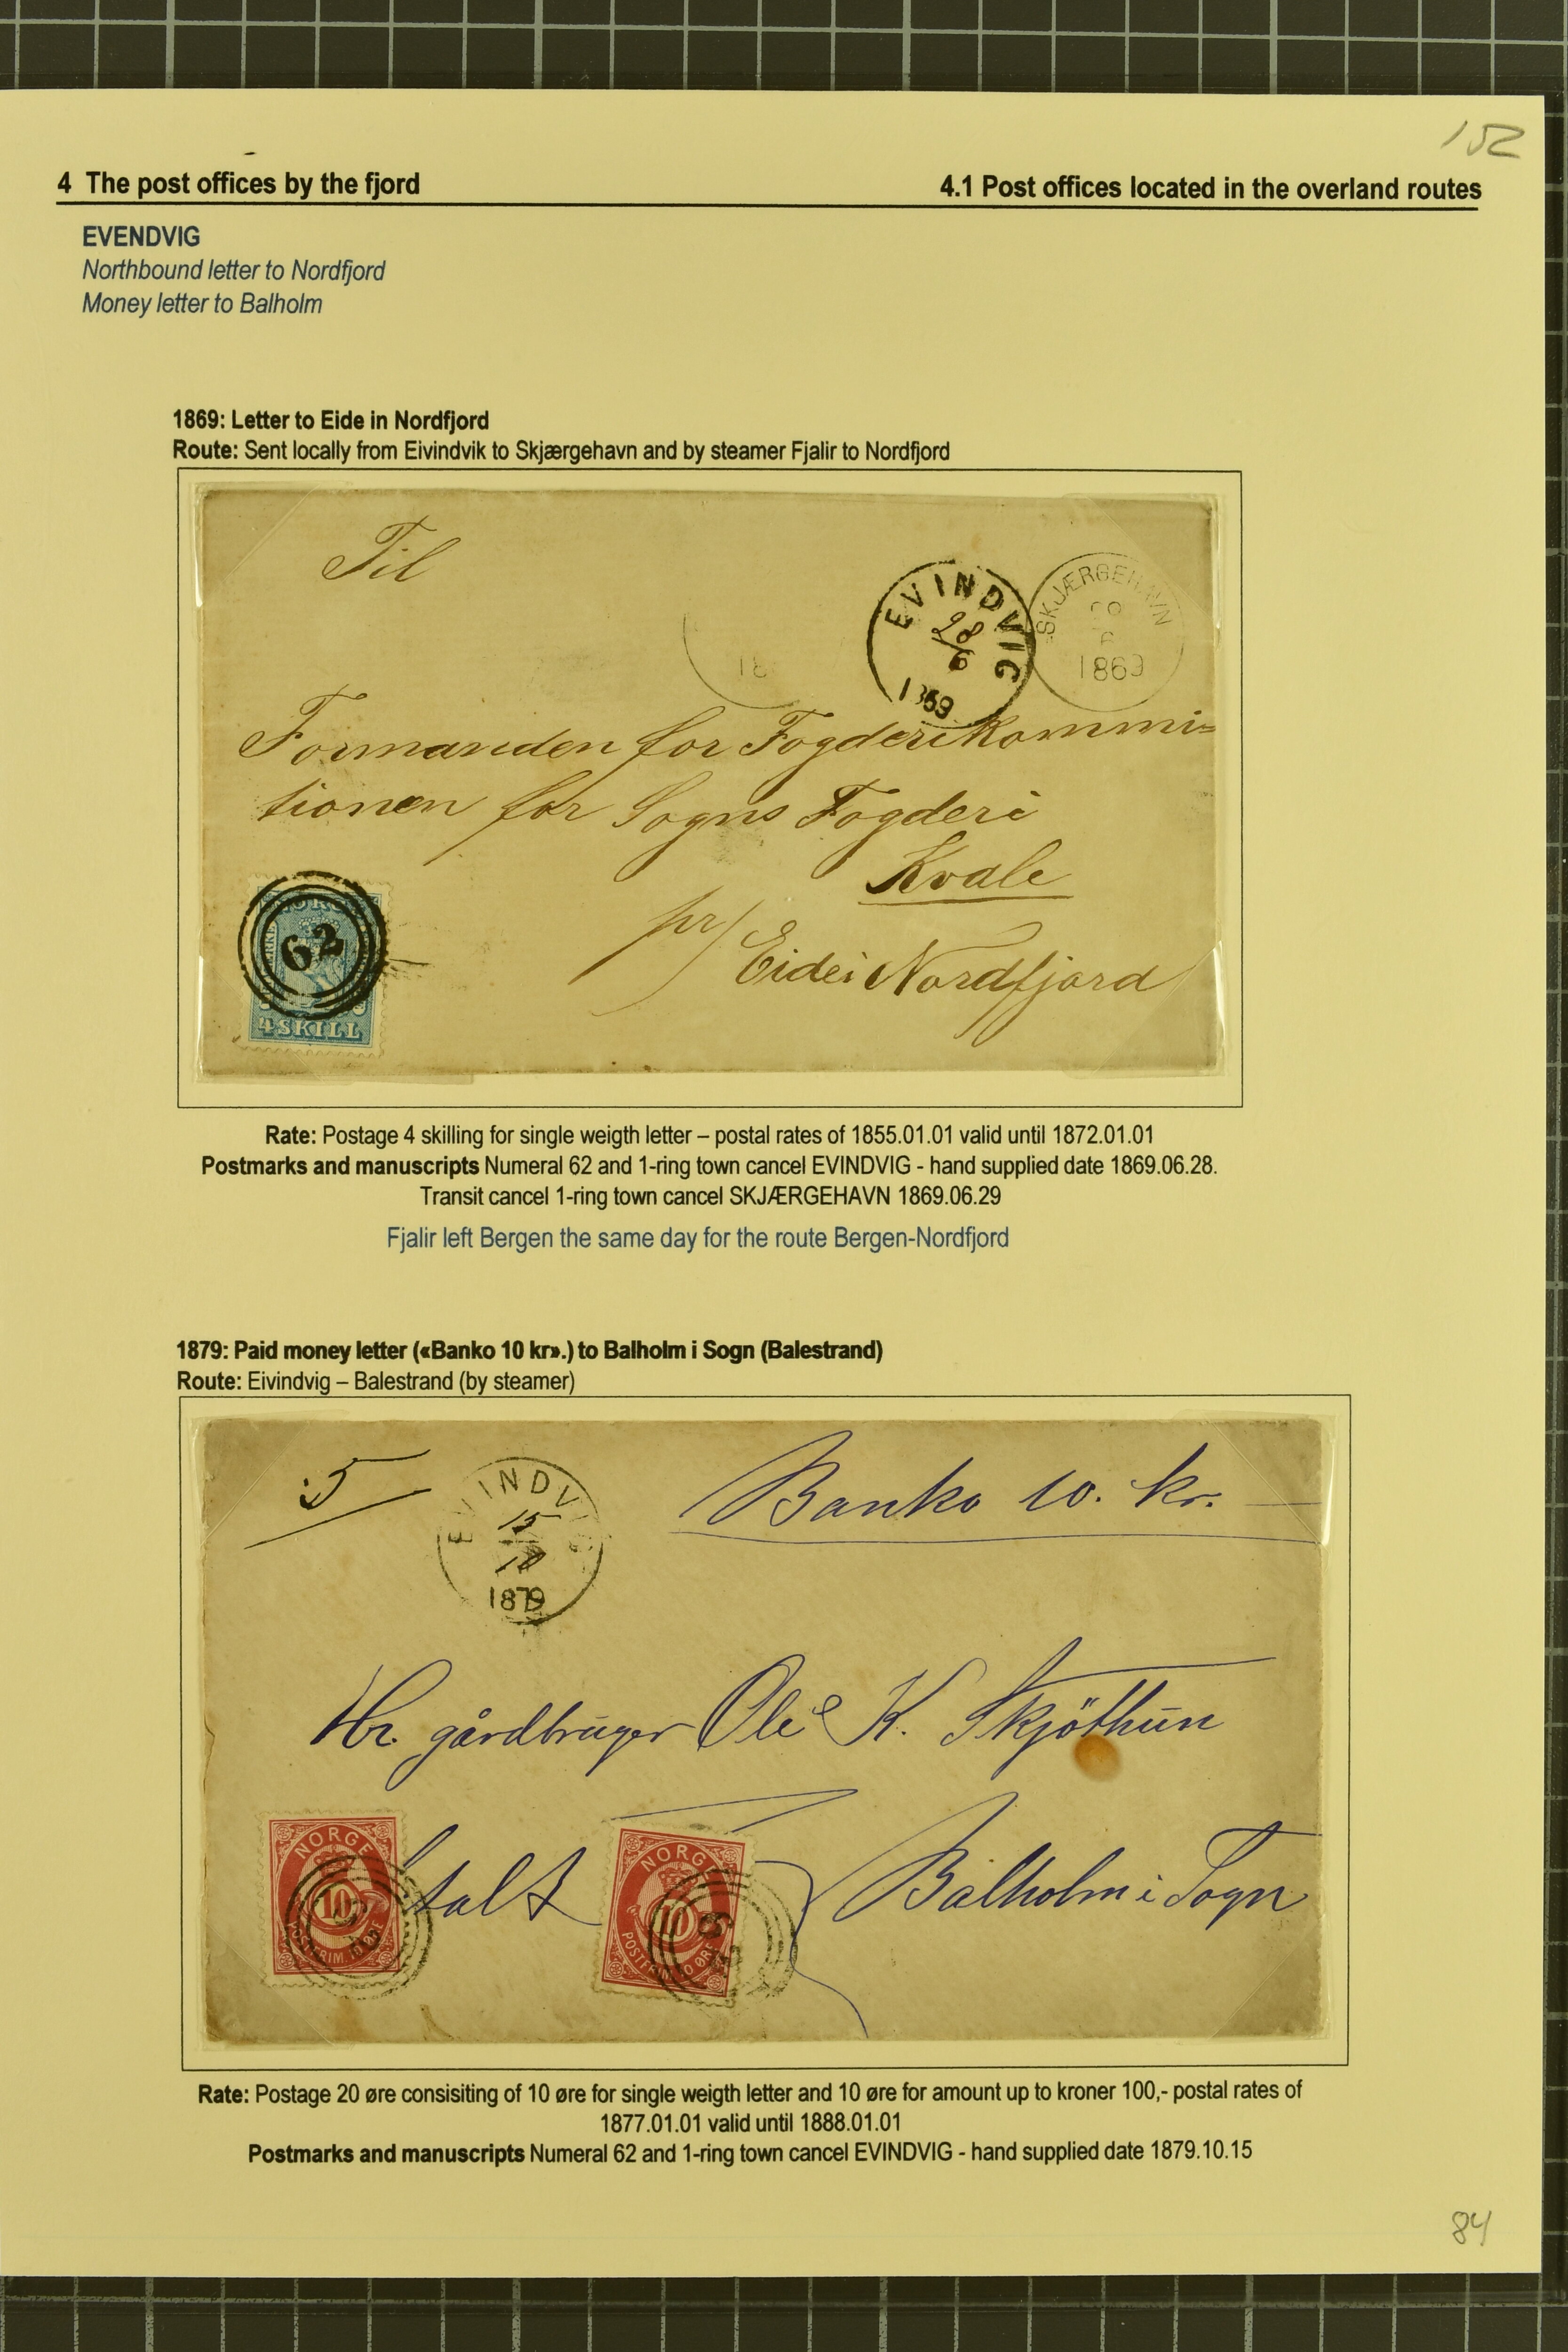 152
4 The post offices by the fjord 4.1 Post offices located in the overland routes
EVENDVIG
Northbound letter to Nordfjord
Money letter to Balholm
1869: Letter to Eide in Nordfjord
Route: Sent locally from Eivindvik to Skjærgehavn and by steamer Fjalir to Nordfjord
Til
EVINDVIG
28/6
1869
SKJÆRGEHAVN
1869
18
Formanden for Fogderikommi=
tionen for Sogns Fogderi
Kvale
pr/ Eide i Nordfjord
NORGE
62
4 SKILL
Rate: Postage 4 skilling for single weigth letter – postal rates of 1855.01.01 valid until 1872.01.01
Postmarks and manuscripts Numeral 62 and 1-ring town cancel EVINDVIG - hand supplied date 1869.06.28.
Transit cancel 1-ring town cancel SKJÆRGEHAVN 1869.06.29
Fjalir left Bergen the same day for the route Bergen-Nordfjord
1879: Paid money letter («Banko 10 kr».) to Balholm i Sogn (Balestrand)
Route: Eivindvig – Balestrand (by steamer)
5
EVINDVIG
15
10
1879
Banko 10. kr.
Hr. gårdbruger Ole K. Skjöthun
NORGE
10
POSTFRIM
talt
NORGE
10
POSTFRIM 10 ØRE
62
Balholm i Sogn
Rate: Postage 20 øre consisiting of 10 øre for single weigth letter and 10 øre for amount up to kroner 100,- postal rates of
1877.01.01 valid until 1888.01.01
Postmarks and manuscripts Numeral 62 and 1-ring town cancel EVINDVIG - hand supplied date 1879.10.15
84